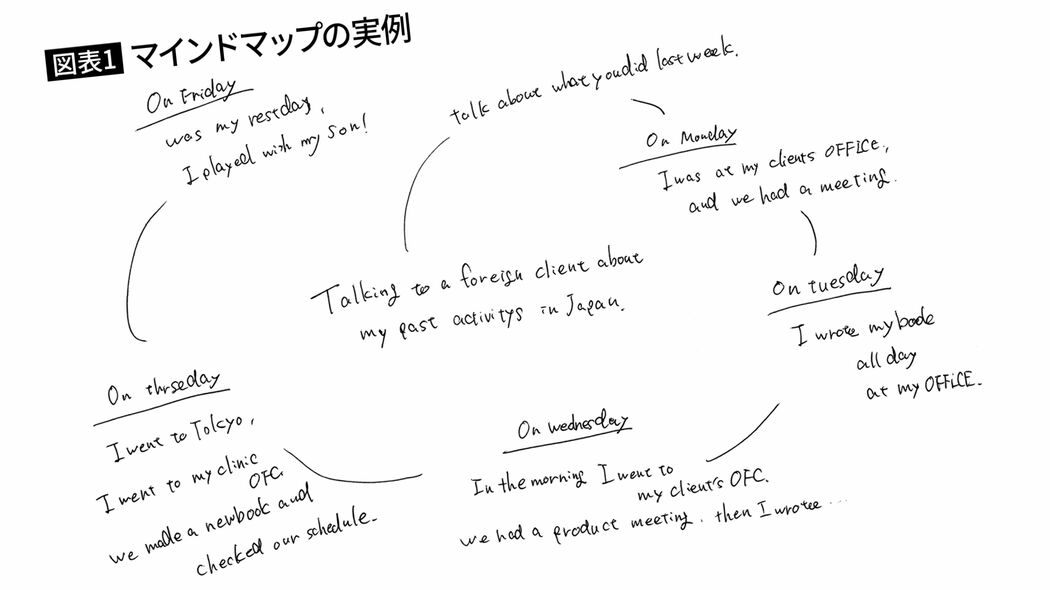 図表1 マインドマップの実例
Talking to a foreign client about
my past activitys in Japan.
talk about what you did last week.
On Monday
I was at my clients OFFICE,
and we had a meeting.
On tuesday
I wrote my book
all day
at my OFFICE.
On wednesday
In the morning I went to
my client's OFC.
we had a product meeting. then I wrotee ...
On thrseday
I went to Tokyo,
I went to my clinic
OFC.
we made a newbook and
checked our schedule.
On Friday
was my restday,
I played with my son!